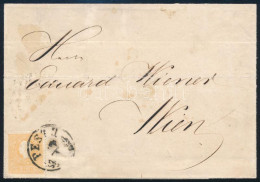 Herrn
Eduard Wiener
Wien
PEST